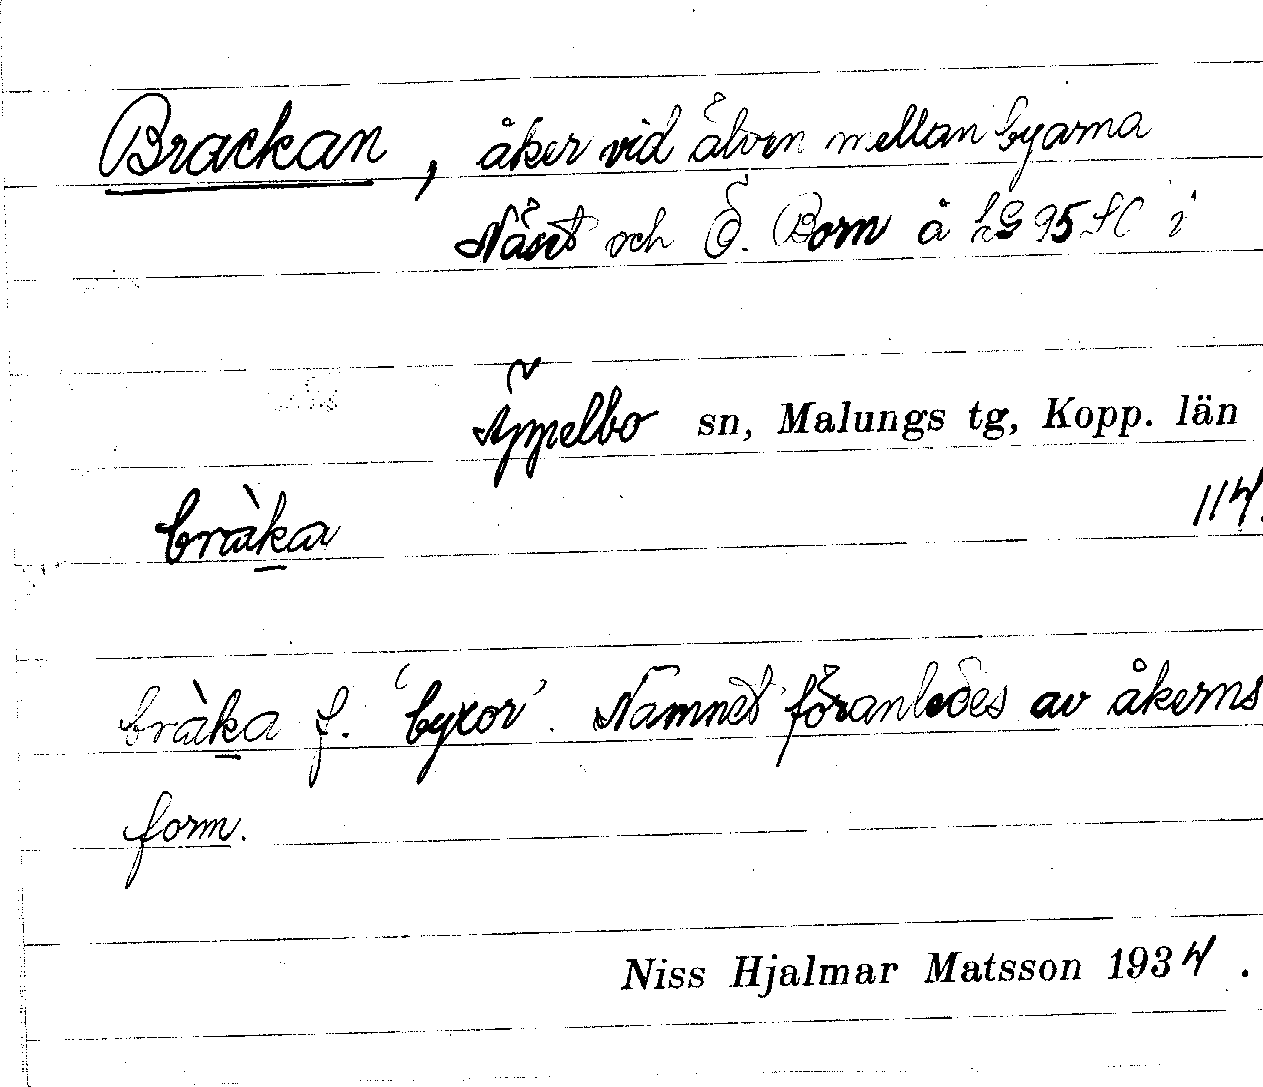 Brackan, åker vid älven mellan byarna
Näset och Ö. Born å LG 95 SO i
Äppelbo sn, Malungs tg, Kopp. län
bràka
114.
bràka f. 'byxor'. Namnet föranledes av åkerns
form.
Niss Hjalmar Matsson 1934.